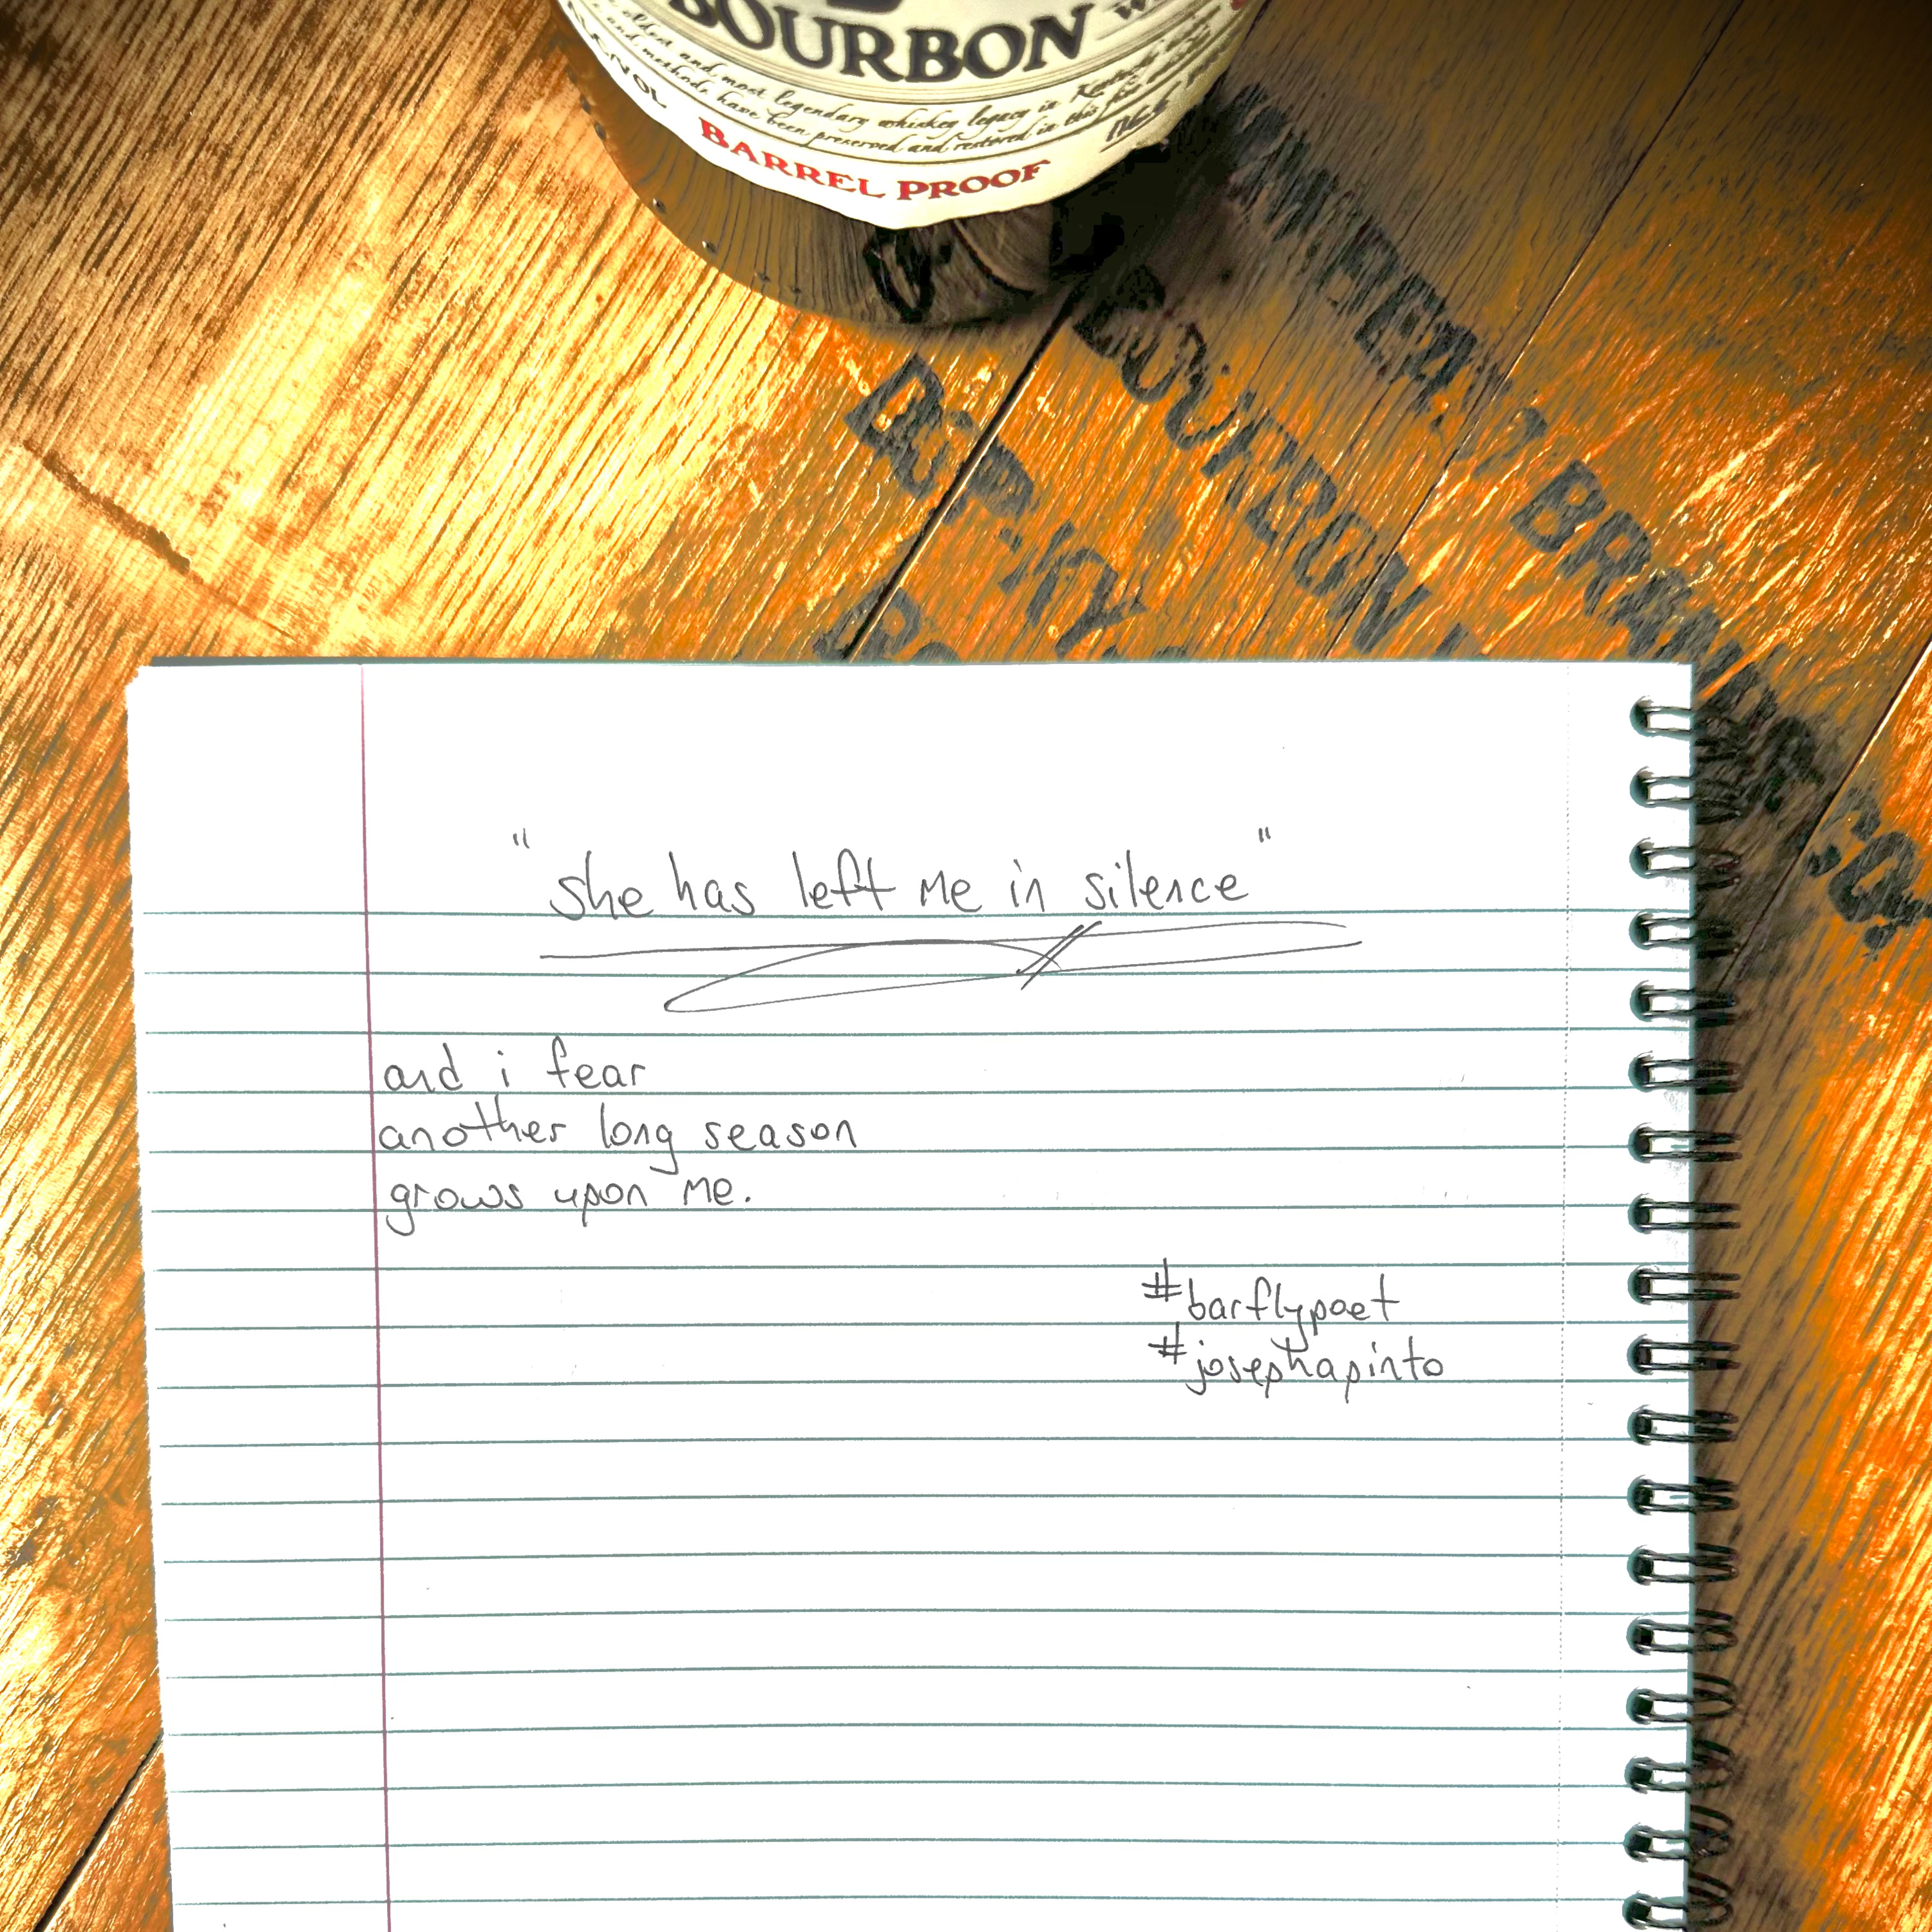 BOURBON
oldest and most legendary whiskey legacy in Kentucky
and methods have been preserved and restored in this fine
BARREL PROOF
BOURBON
"she has left me in silence"
and i fear
another long season
grows upon me.
#barflypoet
#josephapinto